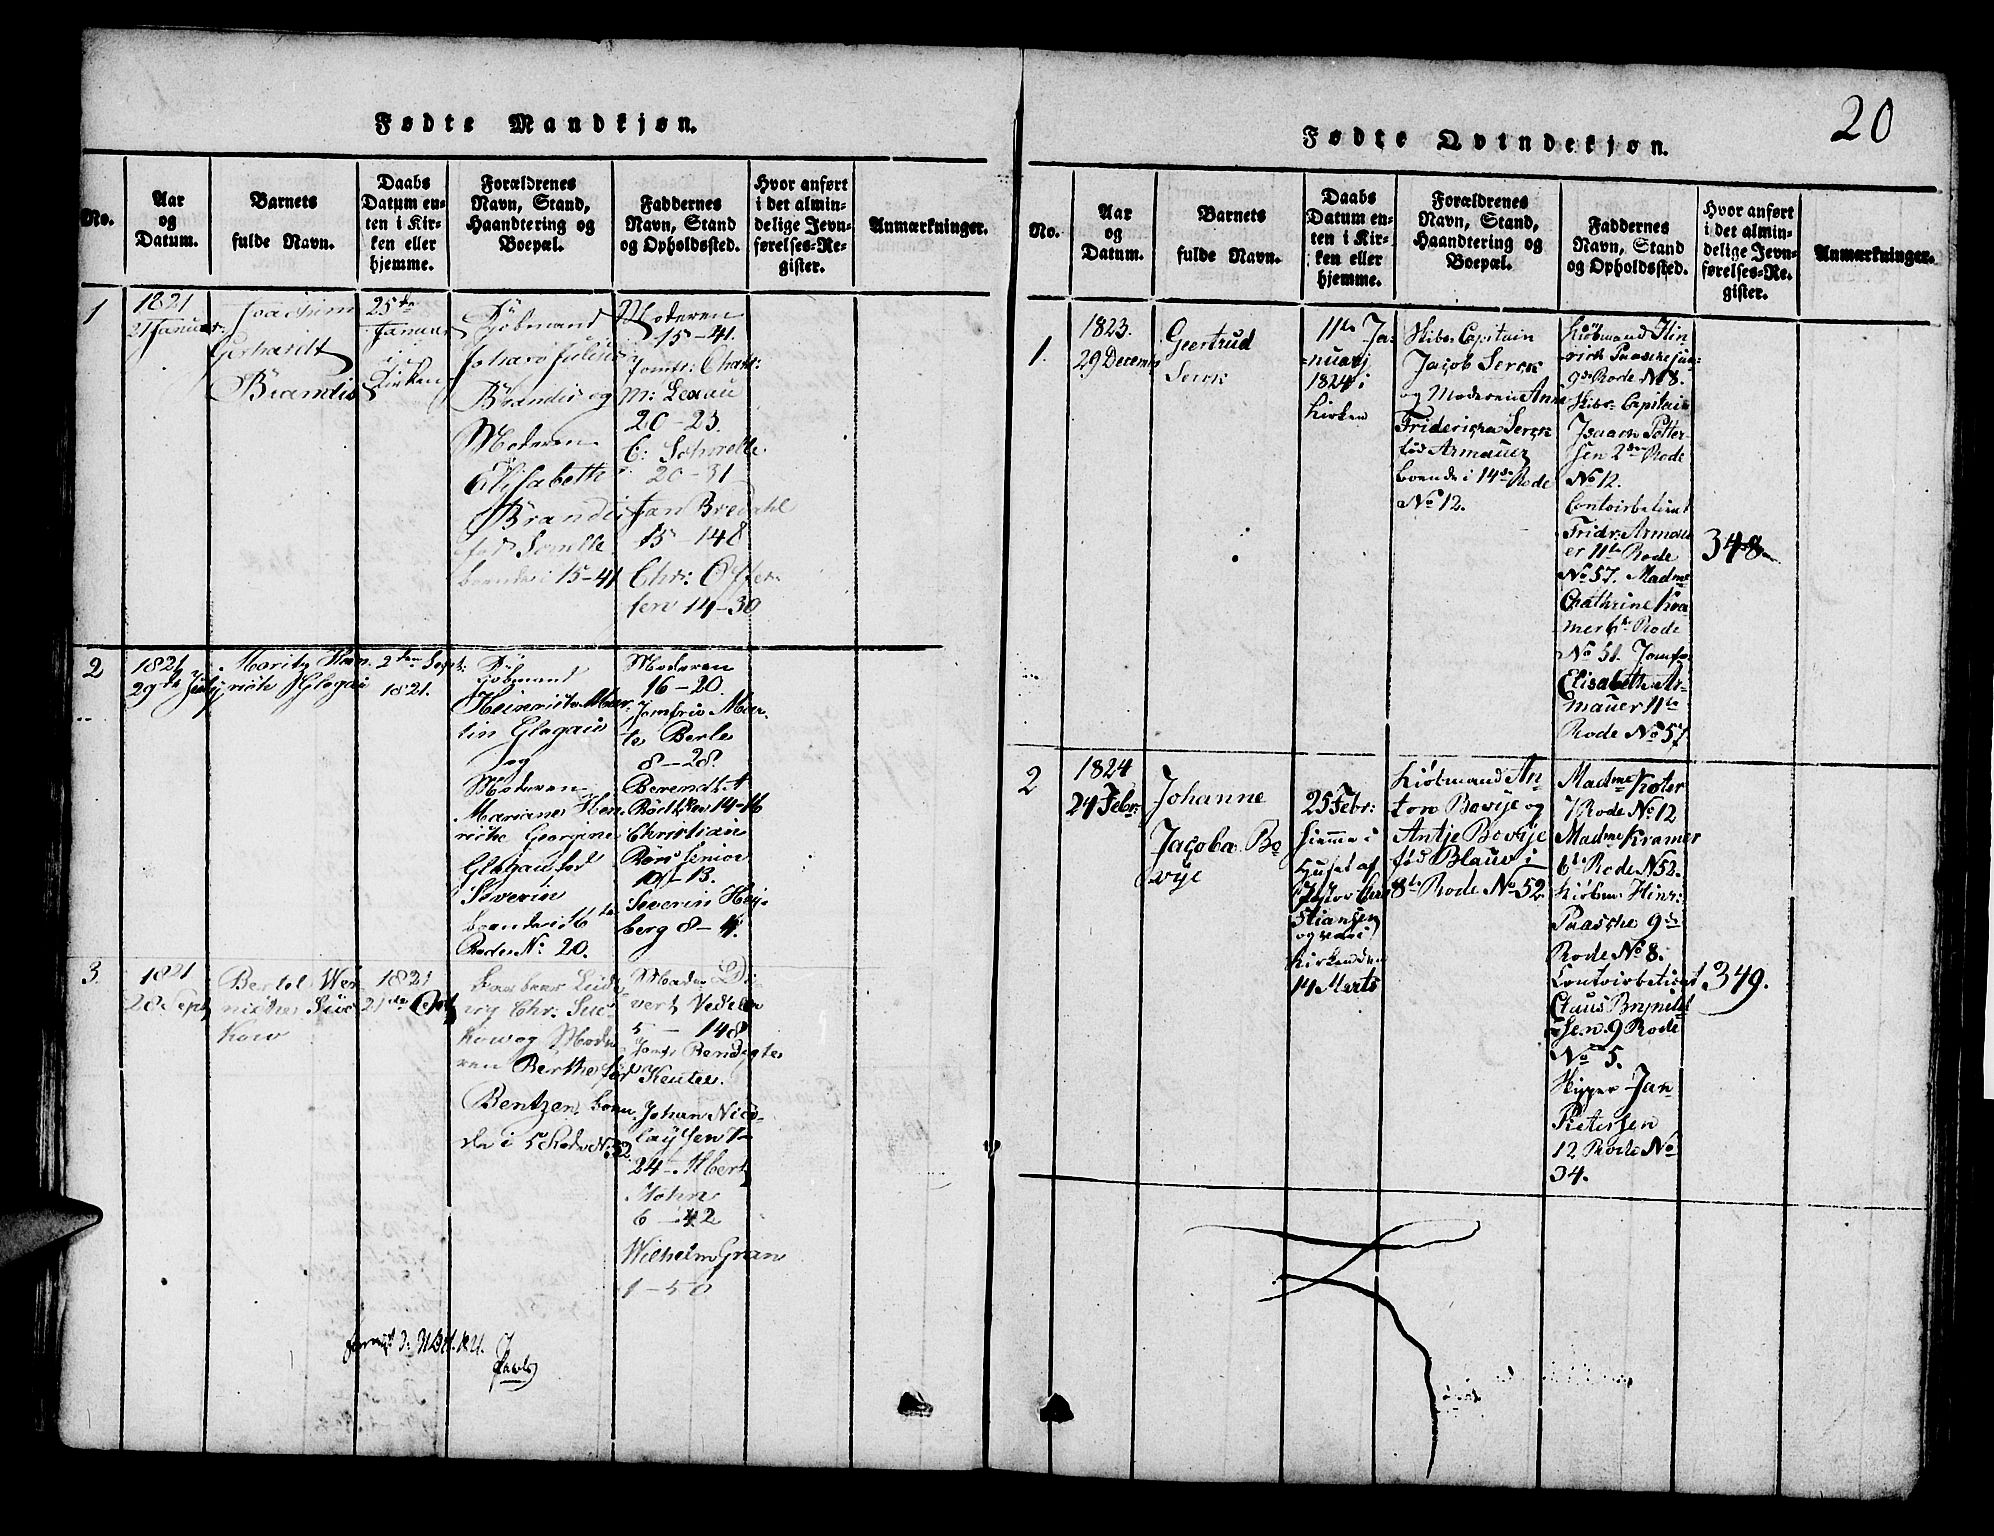 20
Fødte Mandkjøn.
No.
Aar
og
Datum.
Barnets
fulde Navn.
Daabs
Datum en-
ten i Kir-
ken eller
hjemme.
Forældrenes
Navn, Stand,
Haandtering og
Boepæl.
Faddernes
Navn, Stand
og Opholdssted.
Hvor anført
i det almin-
delige Jevn-
førelses-Re-
gister.
Anmærkninger.
1
1821
21 Januar
Joachim
Gerhardt
Brandis
25de
Januar
i
Kirken
Kjøbmand
Johan Julius
Brandis og
Moderen
Elisabeth
Brandis
boende i 15-41
Moderen
15-41.
Jomfr: Charl:
M: Lexau
20-23.
20-31
Jan Bredahl
15-148
Chr:
sen 14-30
2
1821
29de July
Moritz Hen-
rich Glogau
2den Sept:
1821.
Kjøbmand
Heinrich Mar-
tin Glogau
og
Moderen
Mariane Hen-
riche Georgine
Glogau fød
Severin
boende i 16de
Rode No. 20.
Moderen
16-20.
Jomfru Mar-
te Berle
8-28.
Berendt A
14-16
Christian
Senior
10-13.
Severin Hei-
berg 8-4.
3.
1821
20 Sept
Bertel Wer-
Suc-
kow
1821
21de Oct
Chr: Suc-
kow og Mode-
ren Berthe fød
Bentzen, boen-
de i 5 Rode No. 52.
Vedeler
5-148
Jomfr Bendigte
Reuter.
Johan Nico-
laysen 7-
24. Albert
Mohn
6-42
Wilhelm Gran
1-50
Fødte Qvindekjøn.
No.
Aar
og
Datum.
Barnets
fulde Navn.
Daabs
Datum en-
ten i Kir-
ken eller
hjemme.
Forældrenes
Navn, Stand,
Haandtering og
Boepæl.
Faddernes
Navn, Stand
og Opholdssted.
Hvor anført
i det almin-
delige Jevn-
førelses-Re-
gister.
Anmærkninger.
1.
1823.
29 Decemb
Geertrud
Serck
11te Ja-
nuarj
1824 i
Kirken
Skibs Capitain
Jacob Serck
og Moderen Anne
Fridericha Serck
fød Armauer
boende i 14de Rode
No 12.
Kiøbmand Hin-
rich Paasche jun:
9de Rode No 8.
Skibs-Capitain
Isaach Petter-
sen 2den Rode
No 12.
Contoirbetient
Fridr: Armau-
er 11te Rode
No 57. Madme
Chathrine Kra-
mer 6te Rode
No 51. Jomfr
Elisabeth Ar-
mauer 11te
Rode No 57
348
2
1824
24 Febr:
Johanne
Jacoba Bo-
vje
25 Febr:
hiemme i
Huset af
Chri-
stiansen
og var i
Kirken den
14 Marts
Kiøbmand An-
ton Bovje og
Antje Bovje
fød Blauw i
8te Rode No 52.
Madme Koter
7 Rode No 12
Madme Kramer
6te Rode N52.
Kiøbm Hinr:
Paasche 9de
Rode No 8.
Contoirbetient
Claus Brynild-
sen 9 Rode
No 5.
Skipper Jan
Pietersen
12 Rode No
34.
349.